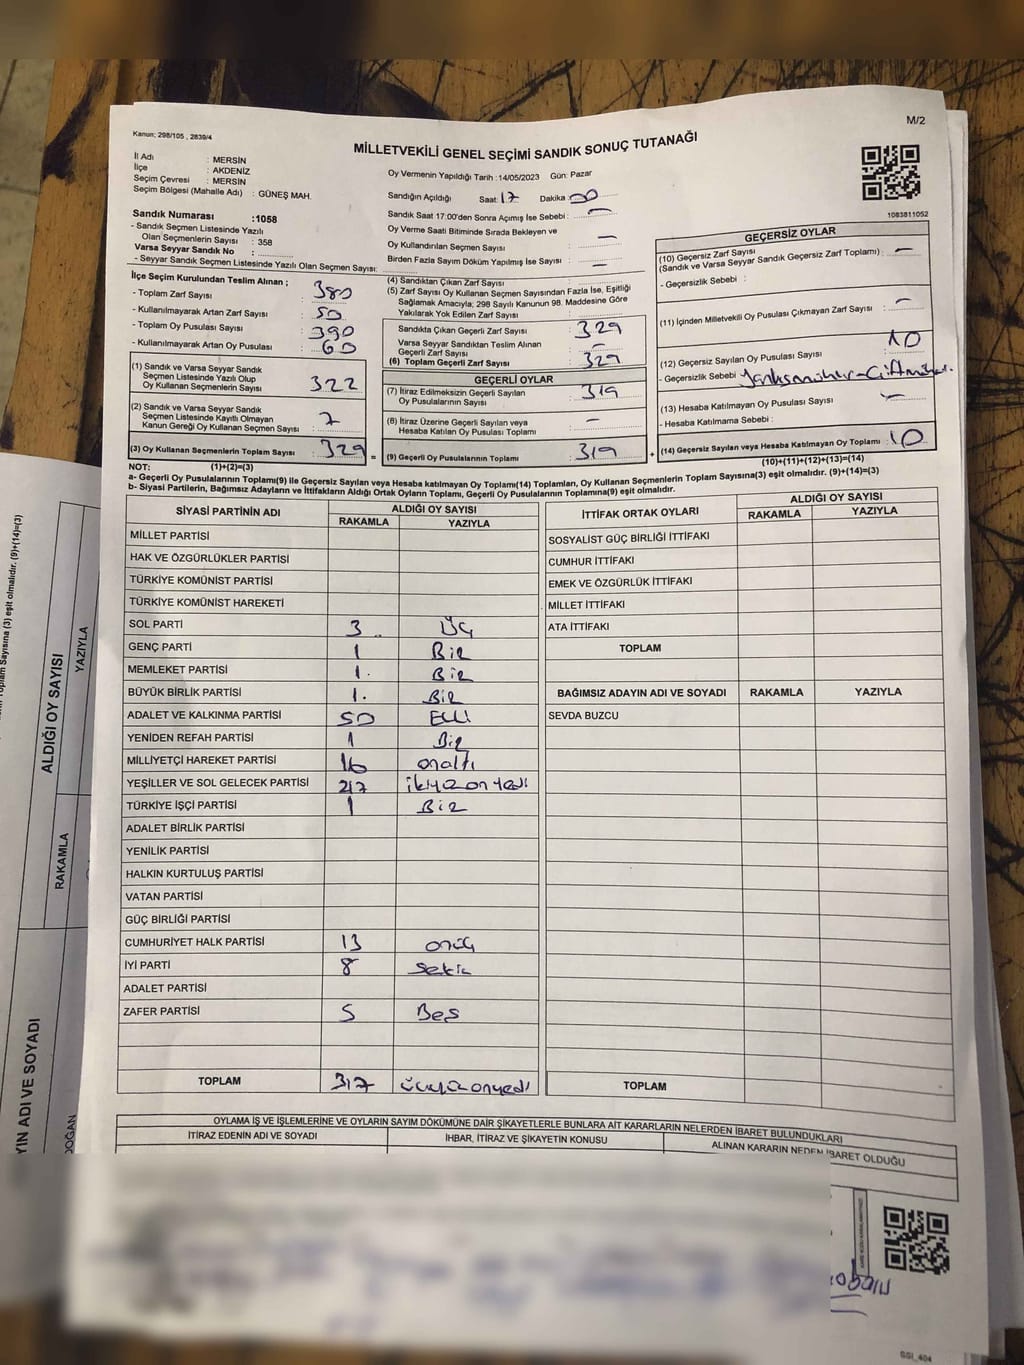 M/2
Kanun; 298/105 , 2839/4
MİLLETVEKİLİ GENEL SEÇİMİ SANDIK SONUÇ TUTANAĞI
İl Adı : MERSİN
İlçe : AKDENİZ
Seçim Çevresi : MERSİN
Seçim Bölgesi (Mahalle Adı) : GÜNEŞ MAH.
Sandık Numarası :1058
- Sandık Seçmen Listesinde Yazılı
Olan Seçmenlerin Sayısı : 358
Varsa Seyyar Sandık No :
- Seyyar Sandık Seçmen Listesinde Yazılı Olan Seçmen Sayısı:
Oy Vermenin Yapıldığı Tarih :14/05/2023 Gün: Pazar
Sandığın Açıldığı Saat: 17 Dakika: 00
Sandık Saat 17:00'den Sonra Açımış İse Sebebi : —
Oy Verme Saati Bitiminde Sırada Bekleyen ve
Oy Kullandırılan Seçmen Sayısı : —
Birden Fazla Sayım Döküm Yapılmış İse Sayısı : —
1083811052
İlçe Seçim Kurulundan Teslim Alınan ;
- Toplam Zarf Sayısı : 380
- Kullanılmayarak Artan Zarf Sayısı : 50
- Toplam Oy Pusulası Sayısı : 390
- Kullanılmayarak Artan Oy Pusulası : 60
(1) Sandık ve Varsa Seyyar Sandık
Seçmen Listesinde Yazılı Olup
Oy Kullanan Seçmenlerin Sayısı : 322
(2) Sandık ve Varsa Seyyar Sandık
Seçmen Listesinde Kayıtlı Olmayan
Kanun Gereği Oy Kullanan Seçmen Sayısı : 7
(3) Oy Kullanan Seçmenlerin Toplam Sayısı : 329
(4) Sandıktan Çıkan Zarf Sayısı :
(5) Zarf Sayısı Oy Kullanan Seçmen Sayısından Fazla İse, Eşitliği
Sağlamak Amacıyla; 298 Sayılı Kanunun 98. Maddesine Göre
Yakılarak Yok Edilen Zarf Sayısı :
Sandıkta Çıkan Geçerli Zarf Sayısı : 329
Varsa Seyyar Sandıktan Teslim Alınan
Geçerli Zarf Sayısı : —
(6) Toplam Geçerli Zarf Sayısı : 329
GEÇERLİ OYLAR
(7) İtiraz Edilmeksizin Geçerli Sayılan
Oy Pusulalarının Sayısı : 319
(8) İtiraz Üzerine Geçerli Sayılan veya
Hesaba Katılan Oy Pusulası Toplamı : —
= (9) Geçerli Oy Pusulalarının Toplamı : 319
GEÇERSİZ OYLAR
(10) Geçersiz Zarf Sayısı
(Sandık ve Varsa Seyyar Sandık Geçersiz Zarf Toplamı) : —
- Geçersizlik Sebebi :
(11) İçinden Milletvekili Oy Pusulası Çıkmayan Zarf Sayısı : —
(12) Geçersiz Sayılan Oy Pusulası Sayısı : 10
- Geçersizlik Sebebi
(13) Hesaba Katılmayan Oy Pusulası Sayısı : —
- Hesaba Katılmama Sebebi :
+ (14) Geçersiz Sayılan veya Hesaba Katılmayan Oy Toplamı : 10
NOT: (1)+(2)=(3)
(10)+(11)+(12)+(13)=(14)
a- Geçerli Oy Pusulalarının Toplamı(9) ile Geçersiz Sayılan veya Hesaba katılmayan Oy Toplamı(14) Toplamları, Oy Kullanan Seçmenlerin Toplam Sayısına(3) eşit olmalıdır. (9)+(14)=(3)
b- Siyasi Partilerin, Bağımsız Adayların ve İttifakların Aldığı Ortak Oyların Toplamı, Geçerli Oy Pusulalarının Toplamına(9) eşit olmalıdır.
SİYASİ PARTİNİN ADI
ALDIĞI OY SAYISI
RAKAMLA YAZIYLA
MİLLET PARTİSİ
HAK VE ÖZGÜRLÜKLER PARTİSİ
TÜRKİYE KOMÜNİST PARTİSİ
TÜRKİYE KOMÜNİST HAREKETİ
SOL PARTİ 3 Üç
GENÇ PARTİ 1 Bir
MEMLEKET PARTİSİ 1. Bir
BÜYÜK BİRLİK PARTİSİ 1. Bir
ADALET VE KALKINMA PARTİSİ 50 Elli
YENİDEN REFAH PARTİSİ 1 Bir
MİLLİYETÇİ HAREKET PARTİSİ 16 onaltı
YEŞİLLER VE SOL GELECEK PARTİSİ 217 ikiyüzonyedi
TÜRKİYE İŞÇİ PARTİSİ 1 Bir
ADALET BİRLİK PARTİSİ
YENİLİK PARTİSİ
HALKIN KURTULUŞ PARTİSİ
VATAN PARTİSİ
GÜÇ BİRLİĞİ PARTİSİ
CUMHURİYET HALK PARTİSİ 13 onüç
İYİ PARTİ 8 sekiz
ADALET PARTİSİ
ZAFER PARTİSİ 5 Beş
TOPLAM 317 üçyüzonyedi
İTTİFAK ORTAK OYLARI
ALDIĞI OY SAYISI
RAKAMLA YAZIYLA
SOSYALIST GÜÇ BİRLİĞİ İTTİFAKI
CUMHUR İTTİFAKI
EMEK VE ÖZGÜRLÜK İTTİFAKI
MİLLET İTTİFAKI
ATA İTTİFAKI
TOPLAM
BAĞIMSIZ ADAYIN ADI VE SOYADI RAKAMLA YAZIYLA
SEVDA BUZCU
TOPLAM
OYLAMA İŞ VE İŞLEMLERİNE VE OYLARIN SAYIM DÖKÜMÜNE DAİR ŞİKAYETLERLE BUNLARA AİT KARARLARIN NELERDEN İBARET BULUNDUKLARI
İTİRAZ EDENİN ADI VE SOYADI İHBAR, İTİRAZ VE ŞİKAYETİN KONUSU ALINAN KARARIN NEDEN İBARET OLDUĞU
ALDIĞI OY SAYISI
RAKAMLA YAZIYLA
YIN ADI VE SOYADI
DOĞAN
Toplam Sayısına (3) eşit olmalıdır. (9)+(14)=(3)